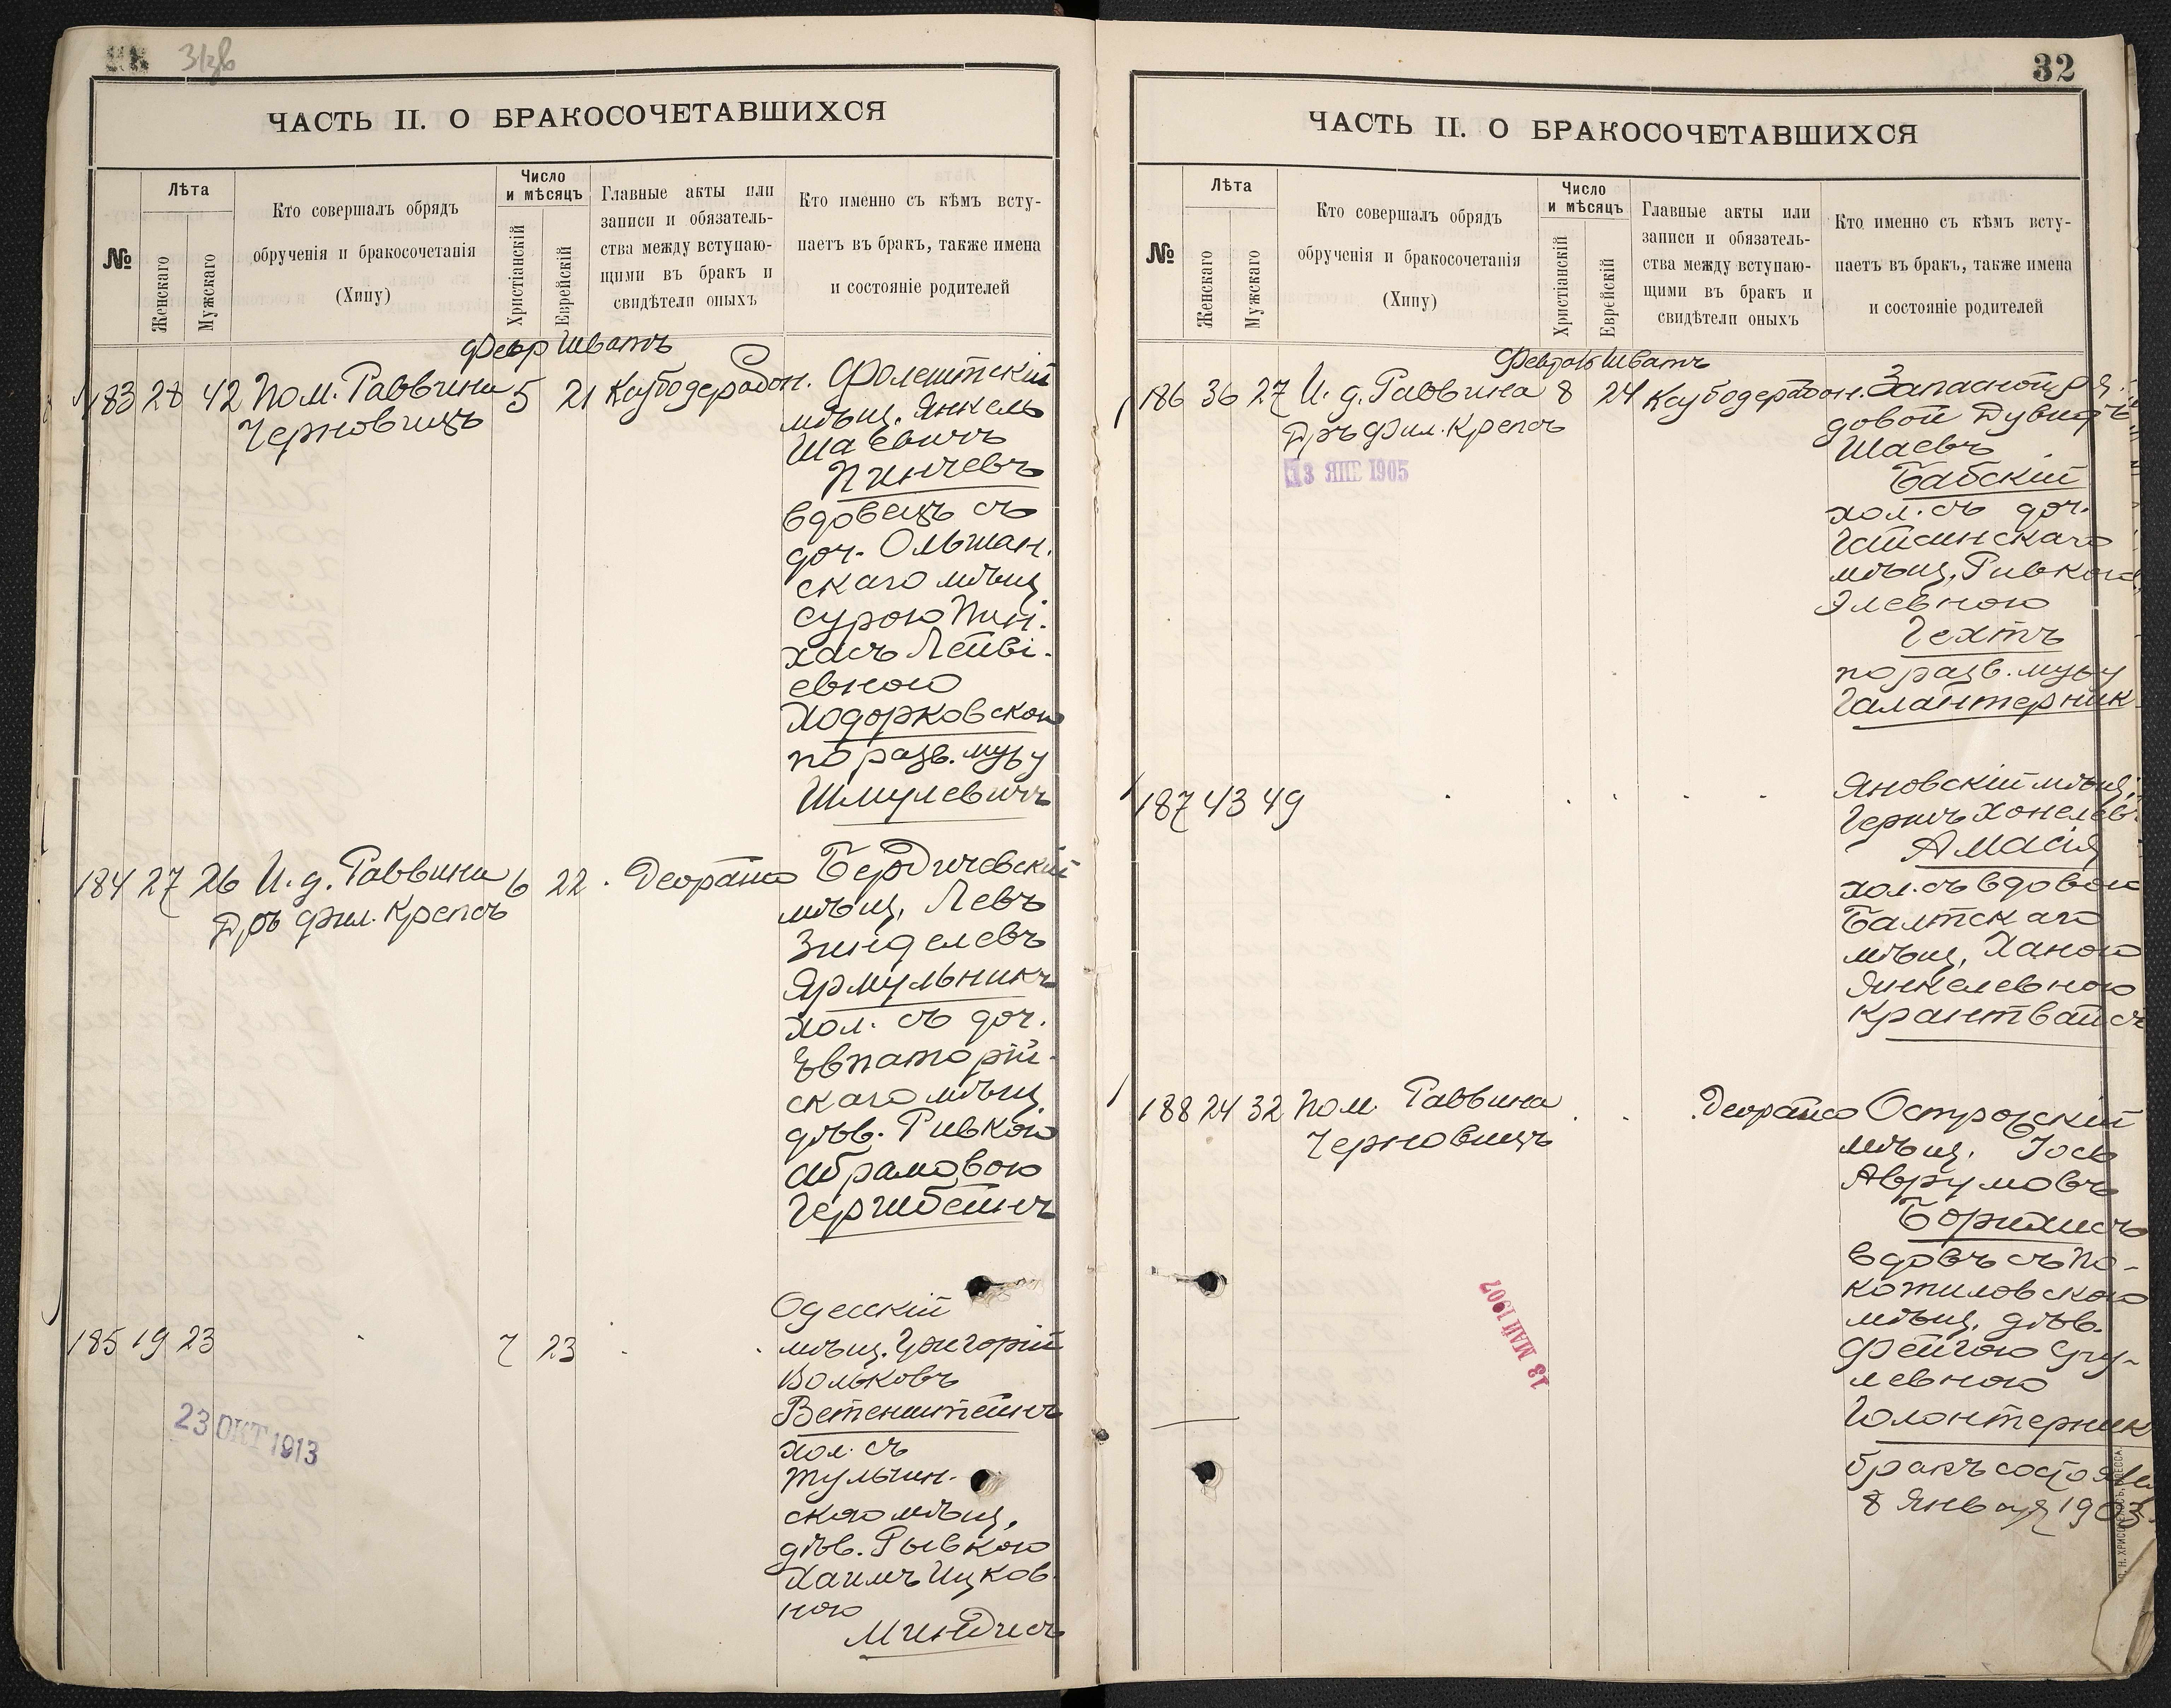 31зв
ЧАСТЬ II. О БРАКОСОЧЕТАВШИХСЯ
№
Лѣта
Женскаго
Мужскаго
Кто совершалъ обрядъ
обрученія и бракосочетанія
(Хипу)
Число
и мѣсяцъ
Христіанскій
Еврейскій
Главные акты или
записи и обязатель-
ства между вступаю-
щими въ бракъ и
свидѣтели оныхъ
Кто именно съ кѣмъ всту-
паетъ въ бракъ, также имена
и состояніе родителей
Февр Шватъ
183 28 42 Пом. Раввина 5 21 Каубодерабон. Фолештскій
Черновицъ
мѣщ. Янкель
Шаевичъ
Пинчевъ
вдовецъ съ
доч. Ольшан.
скаго мѣщ.
Сурою Пин.
хасъ Лейві-
евною
Ходорковскою
по разв. мужу
Шмулевичъ
184 27 26 И. д. Раввина 6 22 Деорайсо Бердичевскій
Дръ фил. Крепсъ
мѣщ. Левъ
Зинделевъ
Ярмульникъ
хол. съ доч.
Евпаторій-
скаго мѣщ.
дѣв. Ривкою
Абрамовою
Гершбейнъ
185 19 23 7 23
Одесскій
мѣщ. Григорій
Вольковъ
Ветенштейнъ
хол. съ
тульчин-
скою мѣщ,
дѣв. Рывкою
Хаимъ Ицков
ною
Миндисъ
23 ОКТ 1913
32
ЧАСТЬ II. О БРАКОСОЧЕТАВШИХСЯ
№
Лѣта
Женскаго
Мужскаго
Кто совершалъ обрядъ
обрученія и бракосочетанія
(Хипу)
Число
и мѣсяцъ
Христіанскій
Еврейскій
Главные акты или
записи и обязатель-
ства между вступаю-
щими въ бракъ и
свидѣтели оныхъ
Кто именно съ кѣмъ всту-
паетъ въ бракъ, также имена
и состояніе родителей
Февраль Шватъ
186 36 27 И. д. Раввина 8 24 Каубодерабон. Запасной ря.
Дръ фил. Крепсъ
13 ЯНВ 1905
довой Дувидъ
Шаевъ
Бабскій
хол. съ доч.
Гайсинскаго
мѣщ, Ривкою
Элевною
Гехтъ
по разв. мужу
Галантерник
187 43 49
Яновскій мѣщ,
Гершъ Хонелев.
Амасія
хол. съ вдовою
Балтскаго
мѣщ, Ханою
Янкелевною
Крантвайсъ
188 24 32 Пом. Раввина Деорайсо Острогскій
Черновицъ
мѣщ. Іось
Аврумовъ
Боримисъ
вдовъ съ По-
котиловскою
мѣщ. дѣв.
Фейгою Сру-
левною
Голонтерник
бракъ состоялся
8 Января 1903
13 МАЙ 1907